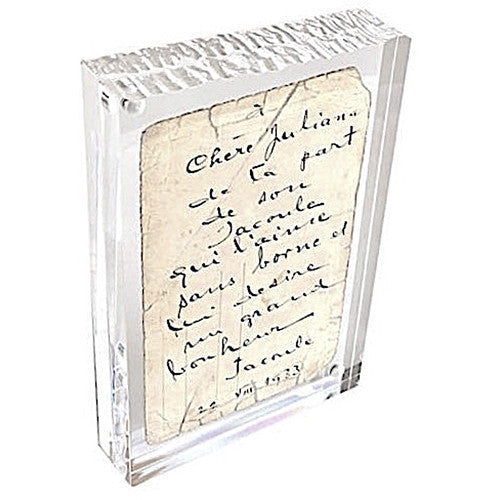 à
Chère Juliana
de la part
de son
Jacoula
qui l'aime
sans borne et
lui desire
un grand
bonheur
Jacoule
22 VIII 1933